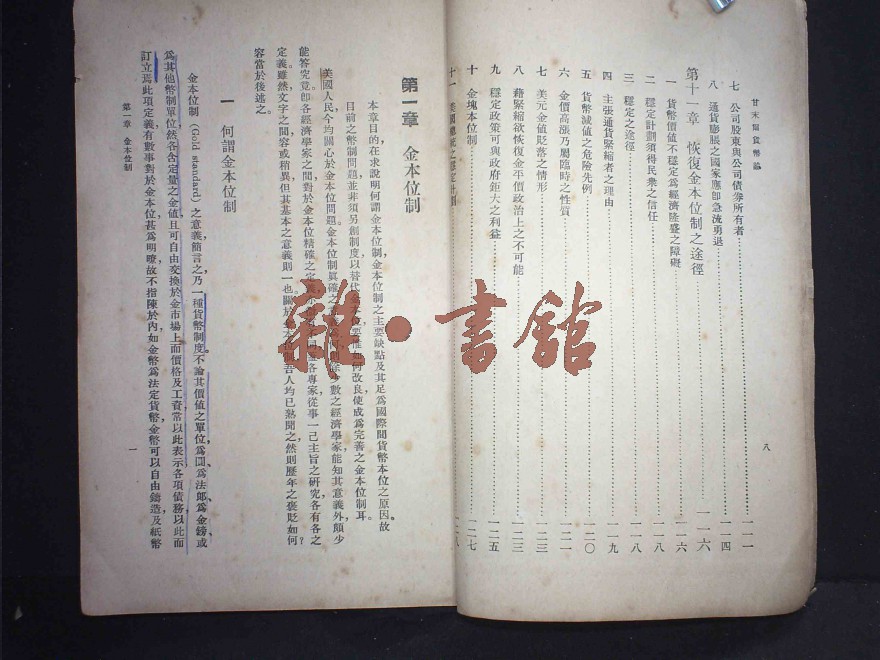 甘末爾貨幣論
八
七 公司股東與公司債券所有者 一一一
八 通貨膨脹之國家應卽急流勇退 一一四
第十一章 恢復金本位制之途徑 一一六
一 貨幣價値不穩定爲經濟隆盛之障礙 一一六
二 穩定計劃須得民衆之信任 一一八
三 穩定之途徑 一一八
四 主張通貨緊縮者之理由 一一九
五 貨幣減値之危險先例 一二〇
六 金價高漲乃屬臨時之性質 一二一
七 美元金値貶落之情形 一二三
八 藉緊縮欲恢復金平價政治上之不可能 一二三
九 穩定政策可與政府鉅大之利益 一二五
十 金塊本位制 一二七
十一 美國總統之穩定計劃
第一章 金本位制
本章目的在求說明何謂金本位制,金本位制之主要缺點及其足爲國際間貨幣本位之原因。故
目前之幣制問題,並非須另創制度以替代金本位,要惟如何改良使成爲完善之金本位制耳。
美國人民今均關心於金本位問題。金本位制眞確之數之經濟學家能知其意義外,頗少
能答究竟。卽各經濟學家之間,對於金本位精確之定義各專家從事一己主旨之硏究,各有各之
定義。雖然,文字之間容或稍異,但其基本之意義則一也。關於金本位制,吾人均已熟聞之,然則歷年之褒貶如何?
容當於後述之。
一 何謂金本位制
金本位制(Gold standard)之意義,簡言之,乃一種貨幣制度。不論其價値之單位,爲圓、爲法郎、爲金鎊,或
爲其他幣制單位,然各含定量之金値,且可自由交換於金市場上,而價格及工資常以此表示,各項債務以此而
訂立焉。此項定義,有數事對於金本位甚爲明暸,故不指陳於內,如金幣爲法定貨幣,金幣可以自由鑄造,及紙幣
第一章 金本位制
一
雜·書館